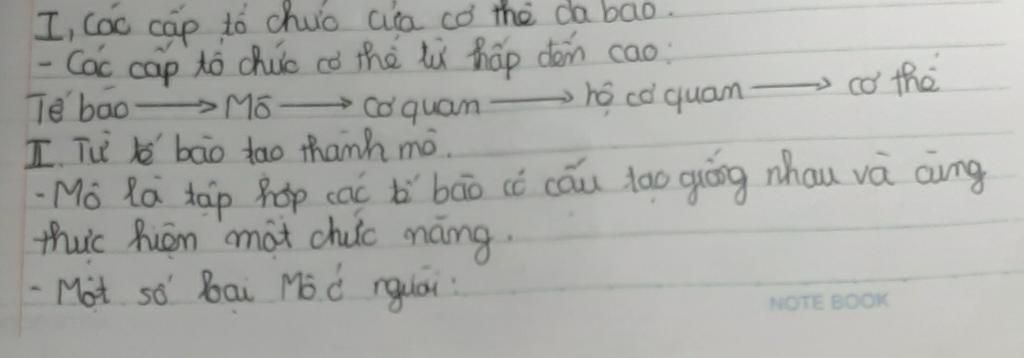 I, Các cấp tổ chức của cơ thể đa bào.
- Các cấp tổ chức cơ thể từ thấp đến cao:
Tế bào → Mô → cơ quan → hệ cơ quan → cơ thể
II. Từ tế bào tạo thành mô.
- Mô là tập hợp các tế bào có cấu tạo giống nhau và cùng
thực hiện một chức năng.
- Một số loại Mô ở người:
NOTE BOOK